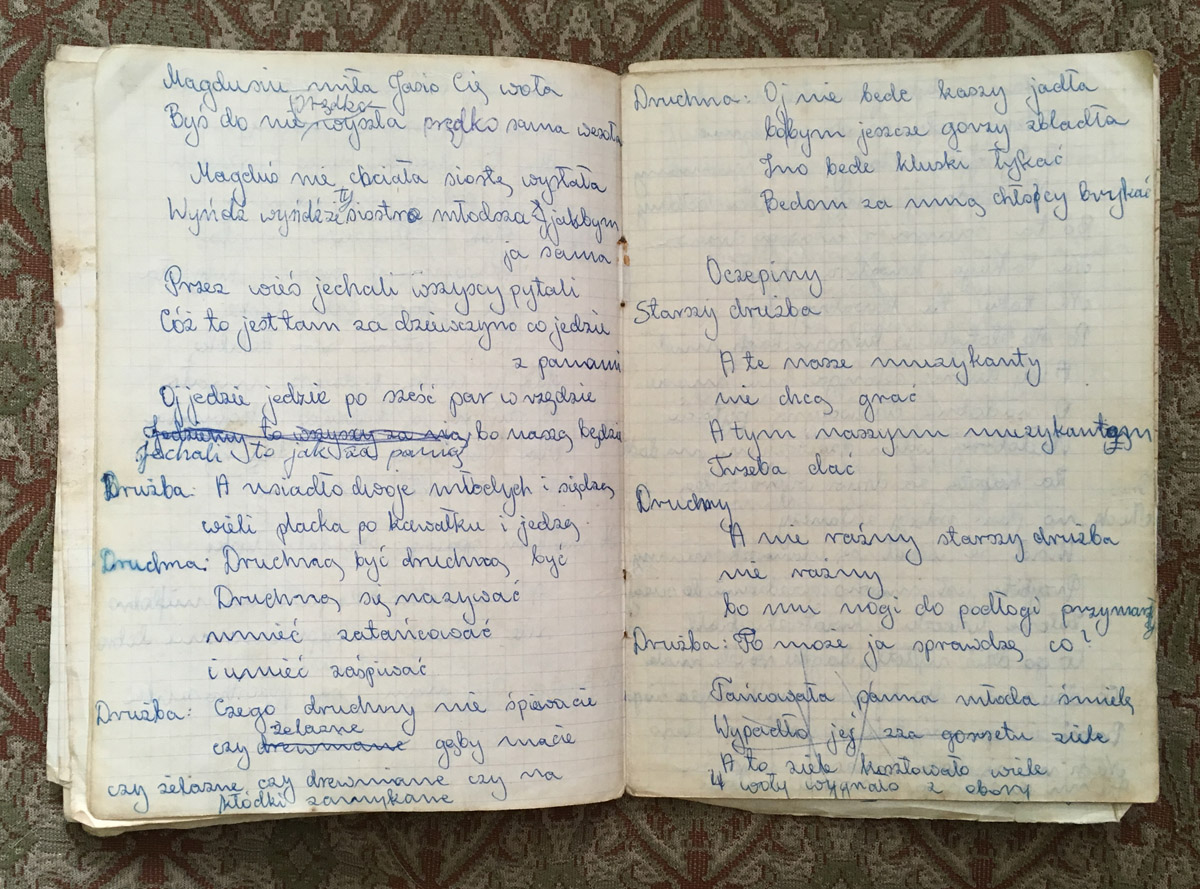 Magdusiu miła Jasio Cię woła
prędko
Byś do nie wyszła prędko sama wesoła
Magduś nie chciała siostę wysłała
ty
Wyńdź wyńdźże siostro młodsza jakbym
ja sama
Przez wieś jechali wszyscy pytali
Cóż to jest tam za dziewczyno co jedzie
z panami
Oj jedzie jedzie po sześć par w rzędzie
Jedziemy to wszyscy za nią bo naszą będzie
Jechali to jak za panną
Drużba: A usiadło dwoje młodych i siędzą
wzieli placka po kawałku i jedzą
Druchna: Druchną być druchną być
Druchną się nazywać
umieć zatańcować
i umieć zaśpiwać
Drużba: Czego druchny nie śpiewacie
żelazne
czy drewniane gęby macie
czy żelazne czy drewniane czy na
płódki zamykane
Druchna: Oj nie bede kaszy jadła
bobym jeszcze gorzy zbladła
Ino bede kluski łyfkać
Bedom za mną chłopcy brykać
Oczepiny
Starszy drużba
A te nasze muzykanty
nie chcą grać
A tym naszym muzykantom
Trzeba dać
Druchny
A nie raźny starszy drużba
nie raźny
bo mu nogi do podłogi przymarzły
Drużba: To może ja sprawdzę co?
Tańcowała panna młoda śmiele
Wypadło jej zza gorsetu ziele
A to ziele kosztowało wiele
4 woły wygnało z obory